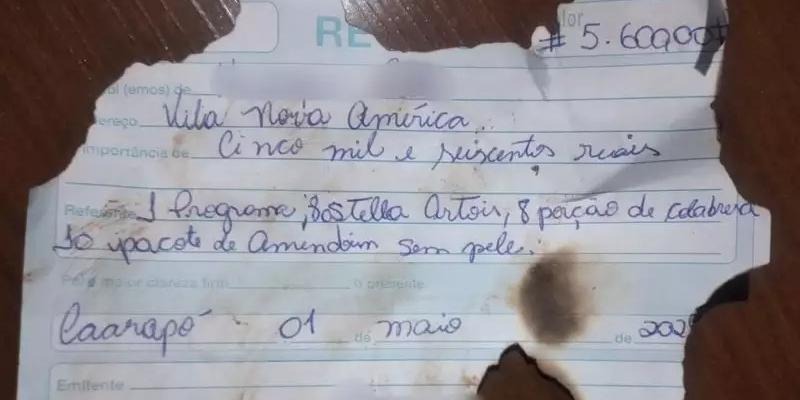 RE
lor
# 5.600,00 #
bi (emos) de
ereço Vila Nova América
importância de Cinco mil e seiscentos reais
Referente 1 Programa, 80 Stella Artois, 8 porção de calabresa
10 pacote de Amendoim sem pele.
Para maior clareza firm o presente
Caarapó 01 de maio de 202
Emitente